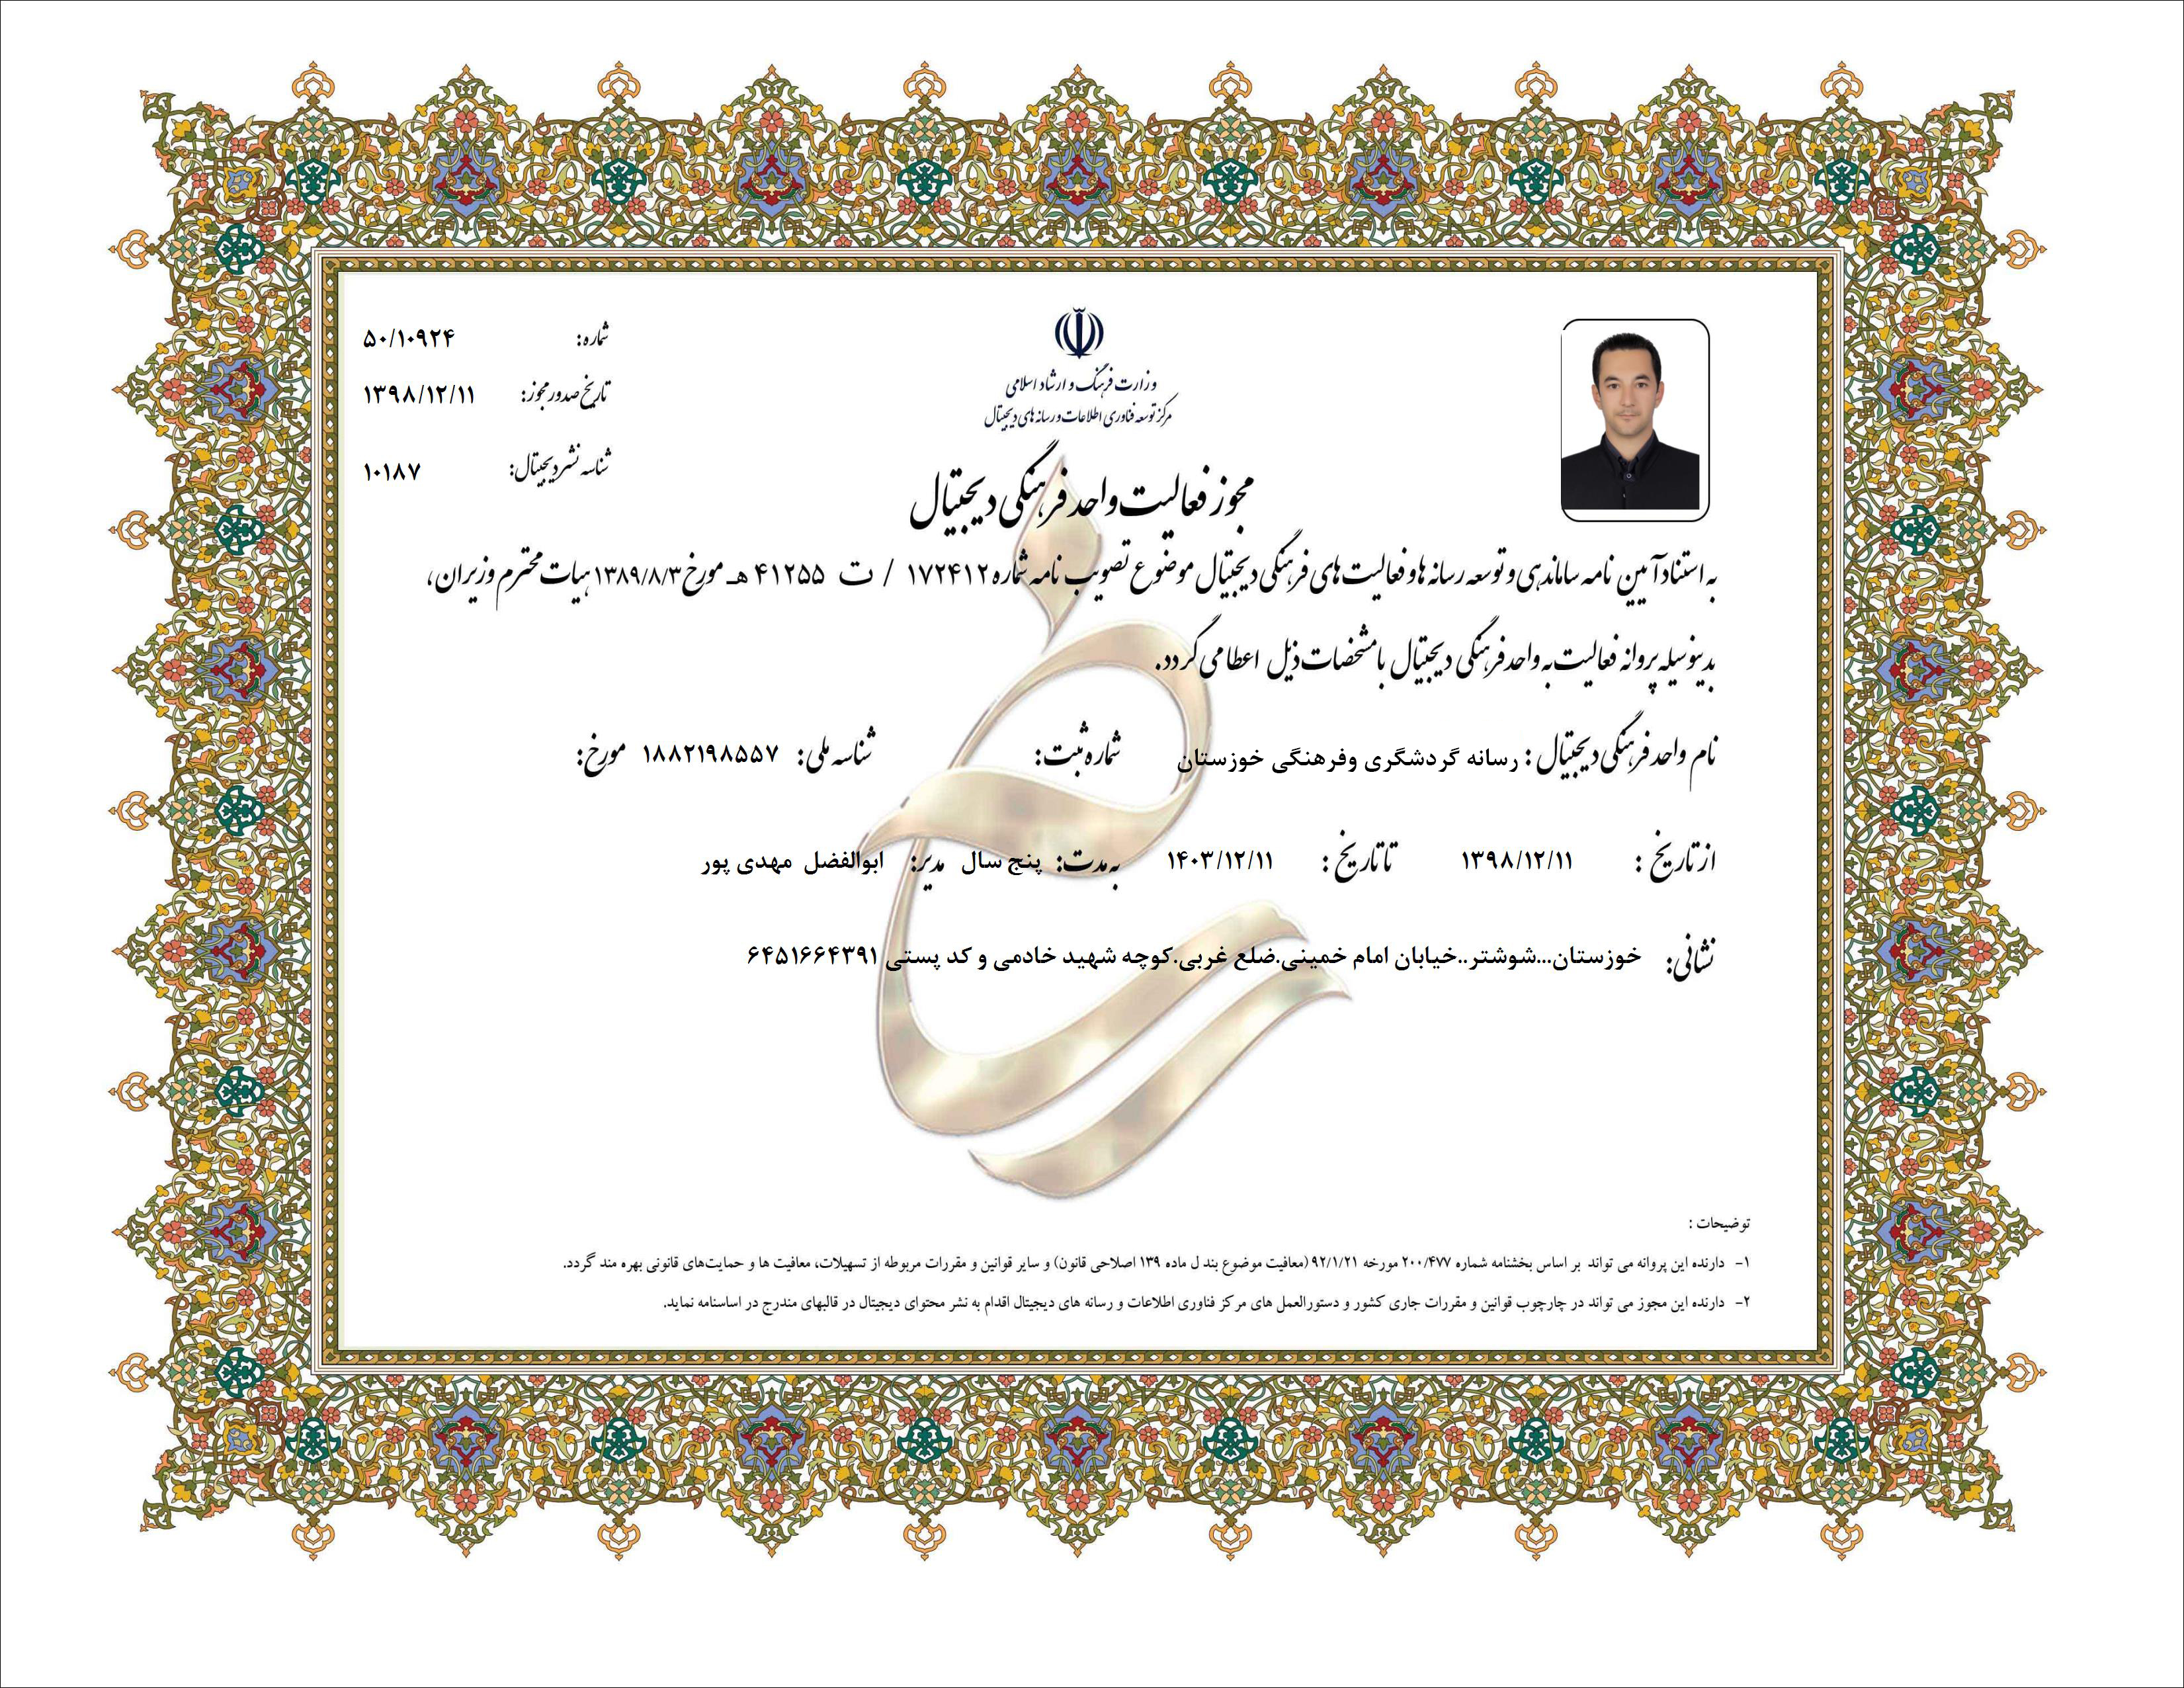 شماره: ۵۰/۱۰۹۲۴
تاریخ صدور مجوز: ۱۳۹۸/۱۲/۱۱
شناسه نشر دیجیتال: ۱۰۱۸۷
وزارت فرهنگ و ارشاد اسلامی
مرکز توسعه فناوری اطلاعات و رسانه های دیجیتال
مجوز فعالیت واحد فرهنگی دیجیتال
به استناد آیین نامه ساماندهی و توسعه رسانه ها و فعالیت های فرهنگی دیجیتال موضوع تصویب نامه شماره ۱۷۲۴۱۲ / ت ۴۱۲۵۵ هـ مورخ ۱۳۸۹/۸/۳ هیات محترم وزیران،
بدینوسیله پروانه فعالیت به واحد فرهنگی دیجیتال با مشخصات ذیل اعطا می گردد.
نام واحد فرهنگی دیجیتال : رسانه گردشگری وفرهنگی خوزستان شماره ثبت: شناسه ملی: ۱۸۸۲۱۹۸۵۵۷ مورخ:
از تاریخ : ۱۳۹۸/۱۲/۱۱ تا تاریخ : ۱۴۰۳/۱۲/۱۱ به مدت: پنج سال مدیر: ابوالفضل مهدی پور
نشانی: خوزستان...شوشتر..خیابان امام خمینی.ضلع غربی.کوچه شهید خادمی و کد پستی ۶۴۵۱۶۶۴۳۹۱
توضیحات :
۱- دارنده این پروانه می تواند بر اساس بخشنامه شماره ۲۰۰/۴۷۷ مورخه ۹۲/۱/۲۱ (معافیت موضوع بند ل ماده ۱۳۹ اصلاحی قانون) و سایر قوانین و مقررات مربوطه از تسهیلات، معافیت ها و حمایت‌های قانونی بهره مند گردد.
۲- دارنده این مجوز می تواند در چارچوب قوانین و مقررات جاری کشور و دستورالعمل های مرکز فناوری اطلاعات و رسانه های دیجیتال اقدام به نشر محتوای دیجیتال در قالبهای مندرج در اساسنامه نماید.